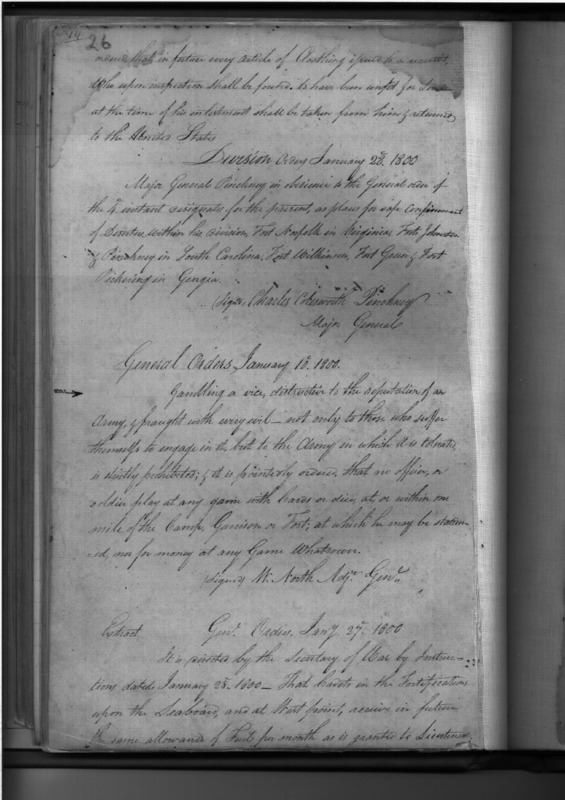 26
that in future every article of Cloathing issued to a recruit,
who upon inspection shall be found to have been unfit for
at the time of his enlistment shall be taken from him & returned
to the United States
Division Orders January 28. 1800
Major General Pinckney in obedience to the General order of
the 4th instant designates for the present, as places for safe Confinement
of within his division, Fort Norfolk in Virginia, Forts Johnston
& Pinckney in South Carolina, Fort Wilkinson, Fort Green & Fort
Pickering in Georgia.
Signed Charles Cotesworth Pinckney
Major General
General Orders January 18. 1800.
Gambling a vice, destructive to the reputation of an
Army, & fraught with every evil — not only to those who suffer
themselves to engage in it but to the Army in which it is tolerated,
is strictly prohibited; & it is pointedly ordered, that no officer, or
soldier play at any game with Cards or dice, at, or within one
mile of the Camp, Garrison or Fort, at which he may be station-
-ed, nor for money at any Game Whatsoever.
Signed W. North Adjt. Genl.
Extract Genl. Orders, Jany 27. 1800
It is directed by the Secretary of War by Instruc-
tions dated January 23. 1800 — That Cadets in the Fortifications
upon the Seaboard, and at West point, receive in future
the same allowance of Fuel per month as is granted to Lieutenants